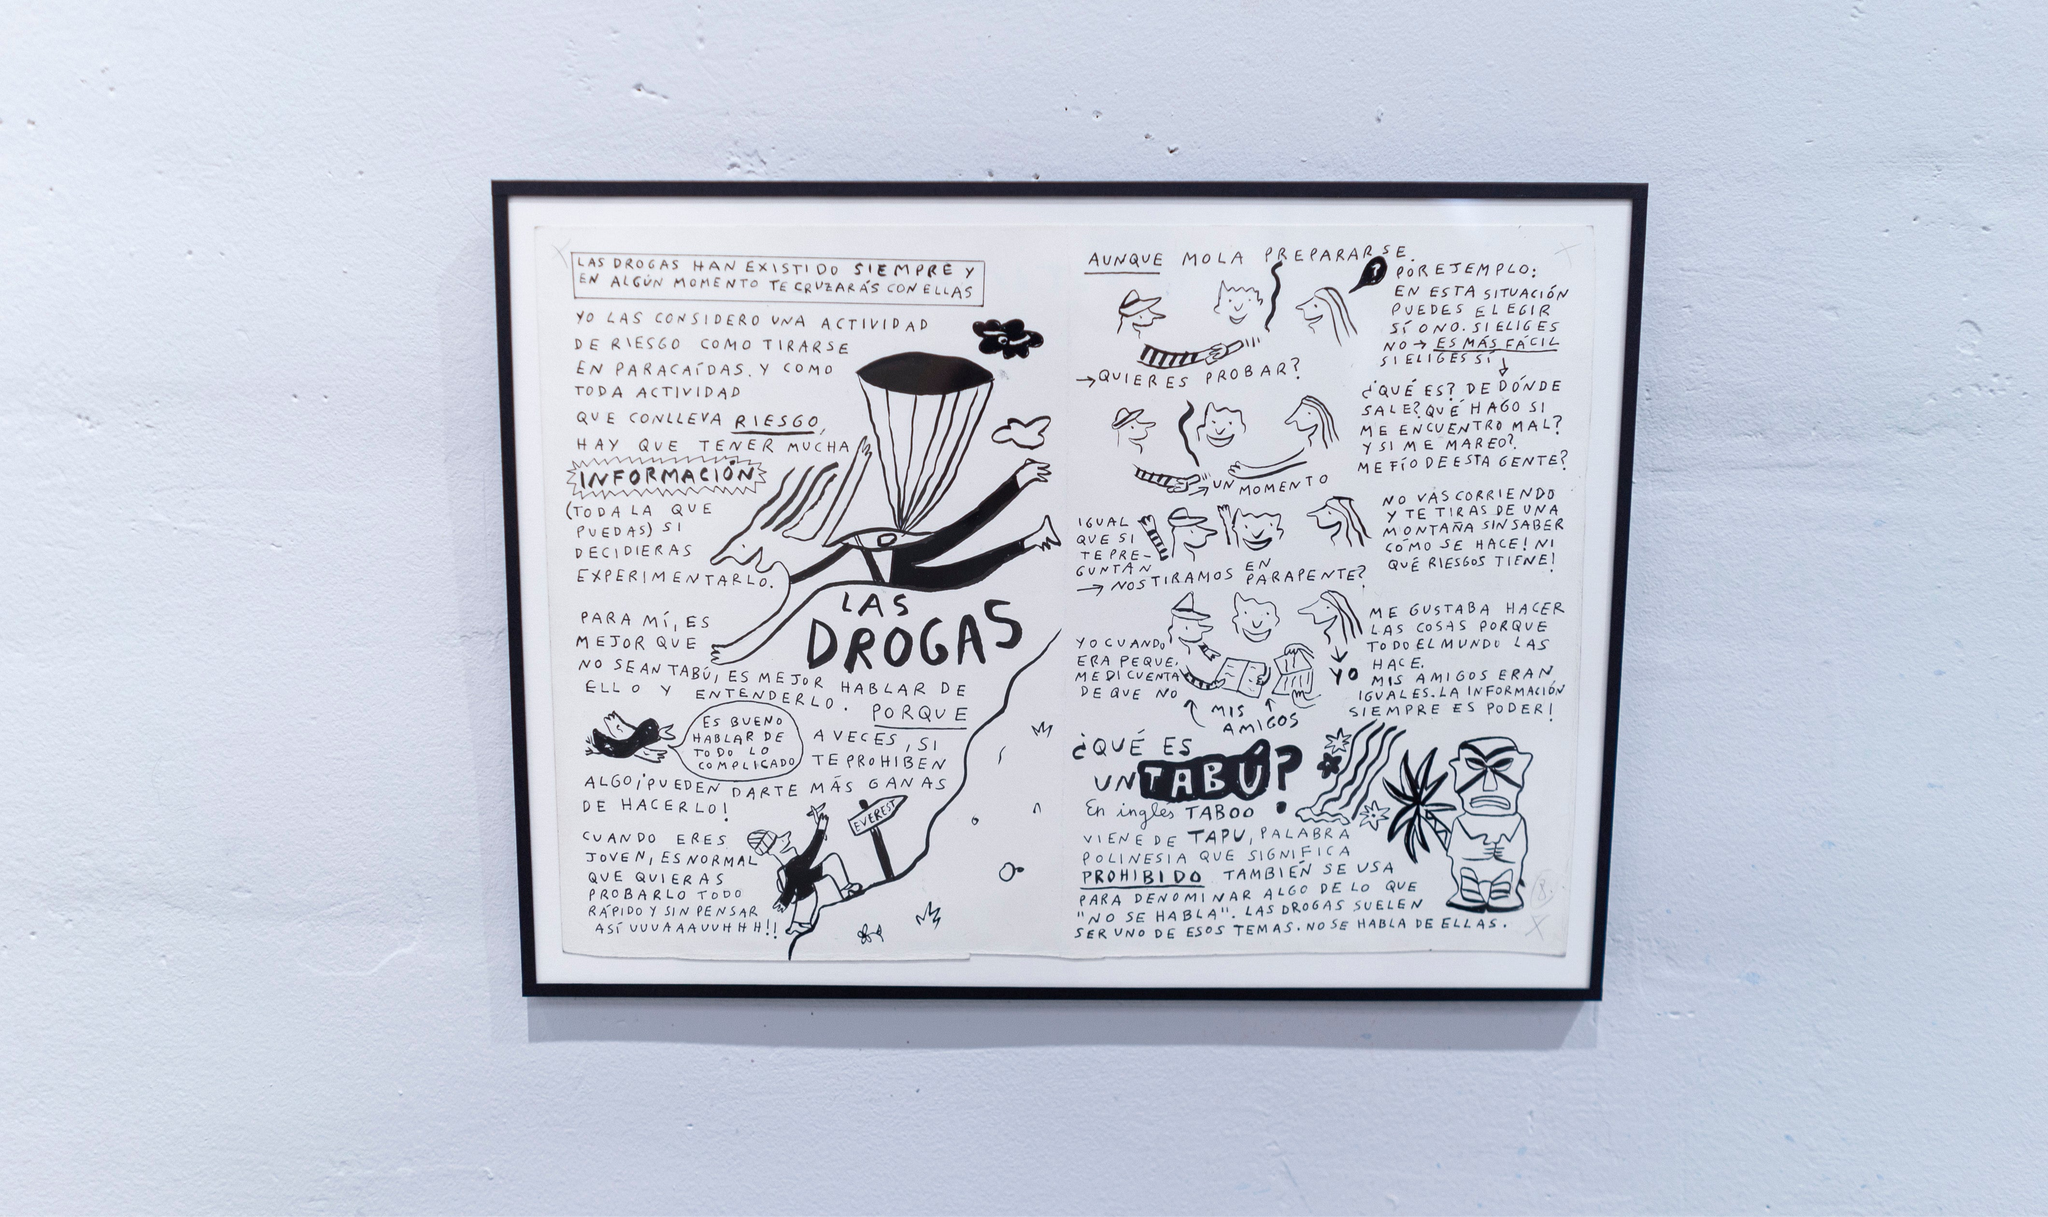 LAS DROGAS HAN EXISTIDO SIEMPRE Y
EN ALGÚN MOMENTO TE CRUZARÁS CON ELLAS
YO LAS CONSIDERO UNA ACTIVIDAD
DE RIESGO COMO TIRARSE
EN PARACAÍDAS. Y COMO
TODA ACTIVIDAD
QUE CONLLEVA RIESGO,
HAY QUE TENER MUCHA
INFORMACIÓN
(TODA LA QUE
PUEDAS) SI
DECIDIERAS
EXPERIMENTARLO.
LAS
DROGAS
PARA MÍ, ES
MEJOR QUE
NO SEAN TABÚ, ES MEJOR HABLAR DE
ELLO Y ENTENDERLO. PORQUE
ES BUENO
HABLAR DE
TODO LO
COMPLICADO
A VECES, SI
TE PROHIBEN
ALGO ¡PUEDEN DARTE MÁS GANAS
DE HACERLO!
EVEREST
CUANDO ERES
JOVEN, ES NORMAL
QUE QUIERAS
PROBARLO TODO
RÁPIDO Y SIN PENSAR
ASÍ UUUAAAUUHHH!!
AUNQUE MOLA PREPARARSE.
?
POR EJEMPLO:
EN ESTA SITUACIÓN
PUEDES ELEGIR
SÍ O NO. SI ELIGES
NO → ES MÁS FÁCIL
SI ELIGES SÍ
→ QUIERES PROBAR?
¿QUÉ ES? DE DÓNDE
SALE? QUÉ HAGO SI
ME ENCUENTRO MAL?
Y SI ME MAREO?
ME FÍO DE ESTA GENTE?
→ UN MOMENTO
IGUAL
QUE SI
TE PRE-
GUNTAN
→ NOS TIRAMOS EN PARAPENTE?
NO VAS CORRIENDO
Y TE TIRAS DE UNA
MONTAÑA SIN SABER
CÓMO SE HACE! NI
QUÉ RIESGOS TIENE!
YO CUANDO
ERA PEQUE,
ME DI CUENTA
DE QUE NO
MIS
AMIGOS
YO
ME GUSTABA HACER
LAS COSAS PORQUE
TODO EL MUNDO LAS
HACE.
MIS AMIGOS ERAN
IGUALES. LA INFORMACIÓN
SIEMPRE ES PODER!
¿QUÉ ES
UN TABÚ?
En inglés TABOO
VIENE DE TAPU, PALABRA
POLINESIA QUE SIGNIFICA
PROHIBIDO TAMBIÉN SE USA
PARA DENOMINAR ALGO DE LO QUE
"NO SE HABLA". LAS DROGAS SUELEN
SER UNO DE ESOS TEMAS. NO SE HABLA DE ELLAS.